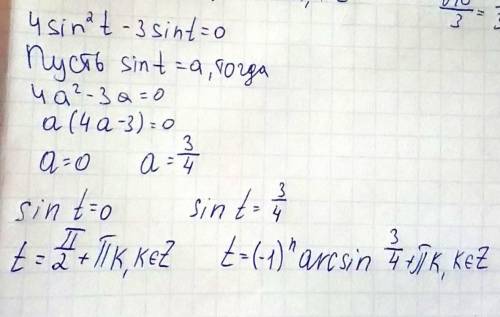 4sin²t - 3sint = 0
Пусть sint = a, тогда
4a² - 3a = 0
a(4a - 3) = 0
a = 0 a = 3/4
sin t = 0 sin t = 3/4
t = π/2 + πk, k∈Z t = (-1)ⁿ arcsin 3/4 + πk, k∈Z